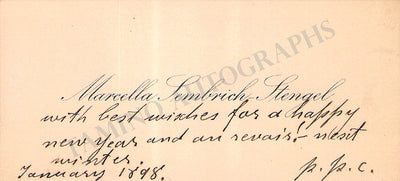 Marcella Sembrich Stengel
with best wishes for a happy
new year and au revoir! - next
winter.
January 1898. p. p. c.
TAMINO AUTOGRAPHS